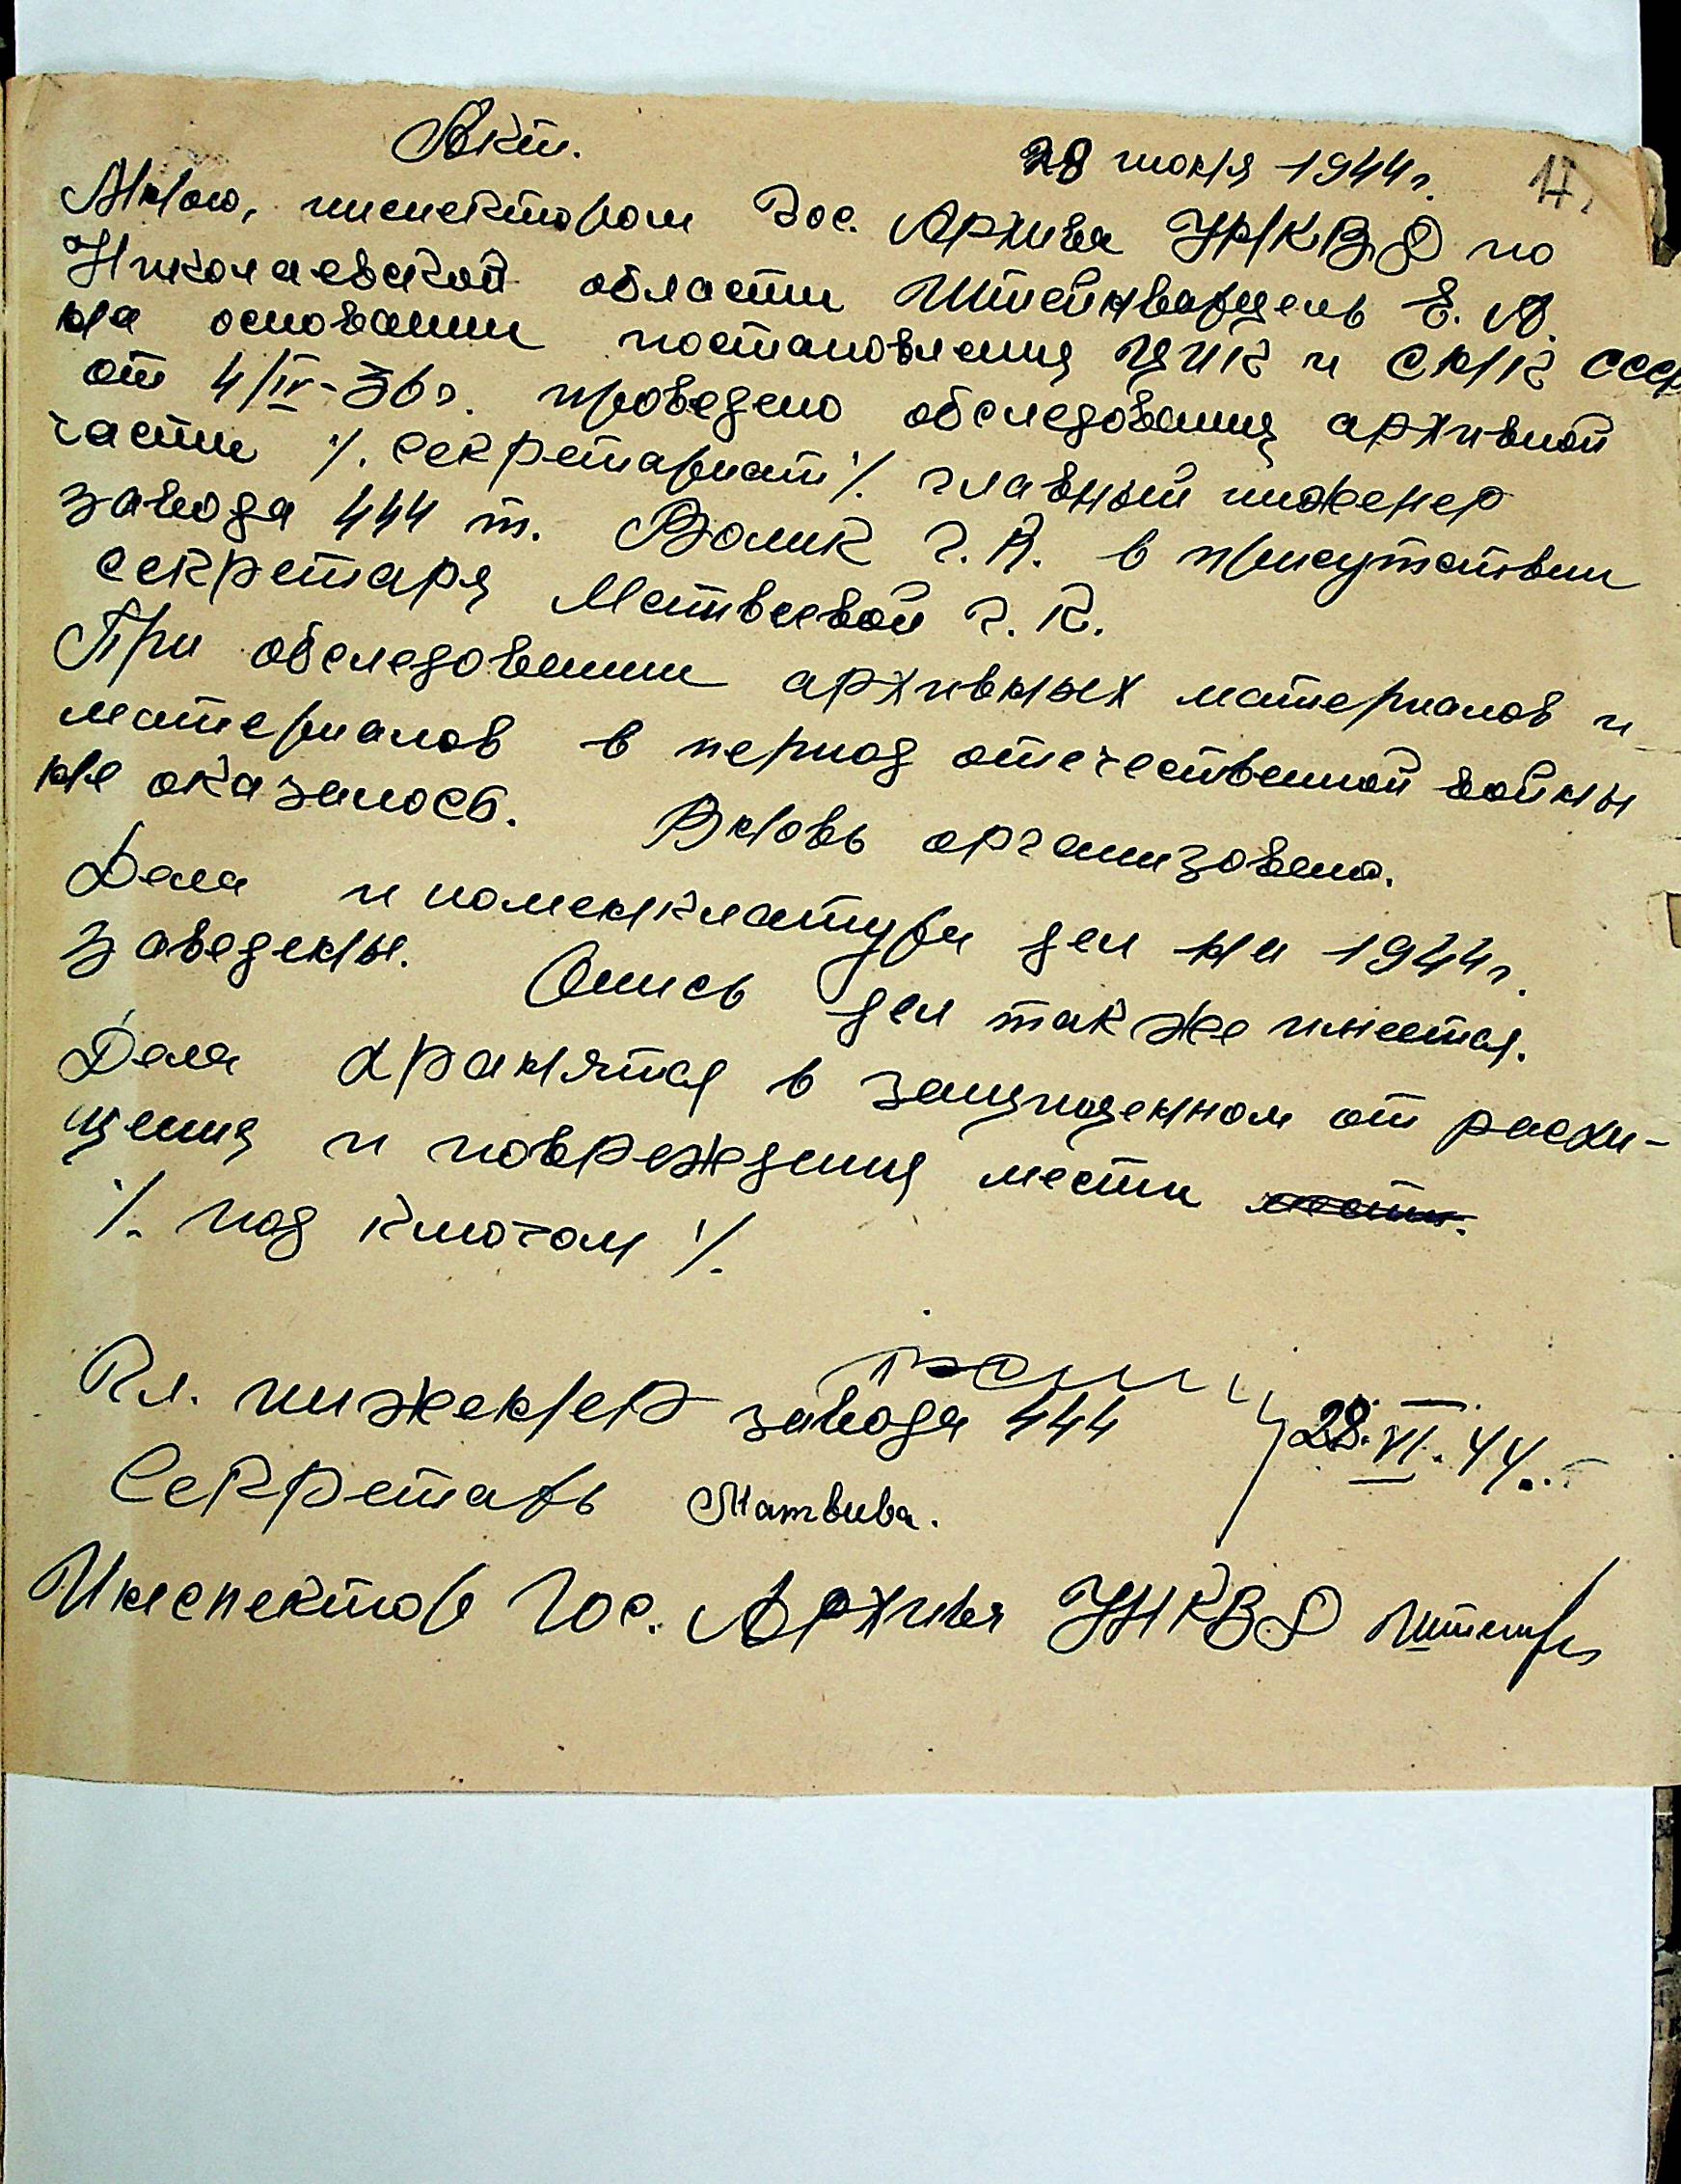 Акт.
28 июня 1944г. 17
Мною, инспектором Гос. Архива УНКВД по
Николаевской области Штейнварцель Е. А.
на основании постановления ЦИК и СНК СССР
от 4/IV-36г. проведено обследования архивной
части /. секретариат /. главный инженер
завода 444 т. Волик Г. К. в присутствии
секретаря Матвеевой Г. К.
При обследовании архивных материалов и
материалов в период отечественной войны
не оказалось. Вновь организовано.
Дела и номенклатура дел на 1944г.
заведены. Опись дел так же имеется.
Дела хранятся в защищенном от расхи-
щения и повреждения мести
/. под ключом /.
Гл. инженер завода 444
28.VI.44.
Секретарь Матвиева.
Инспектор Гос. Архива УНКВД